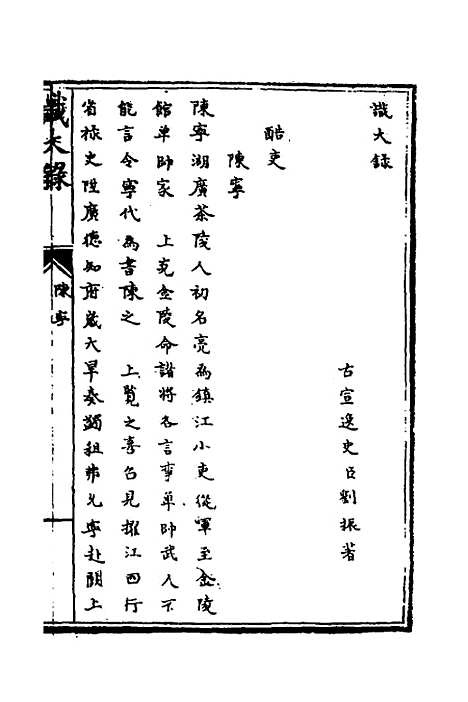 識大錄
古宣逸史臣劉振著
酷吏
陳寧
陳寧湖廣茶陵人初名亮為鎮江小吏從軍至金陵
館单帥家　上克金陵命諸將各言事单帥武人不
能言令寧代為書陳之　上覧之喜召見擢江西行
省掾史陞廣德知府歲大旱奏蠲租弗允寧赴闕上
識大錄
陳寧